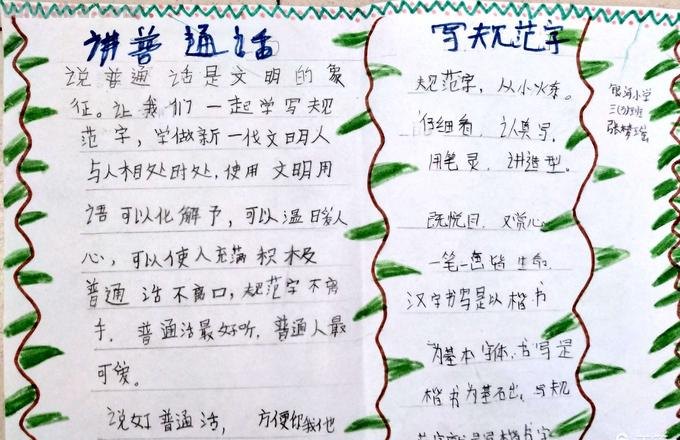 讲普通话
说普通话是文明的象
征。让我们一起学写规
范字，学做新一代文明人
与人相处时处，使用文明用
语可以化解予，可以温暖人
心，可以使人充满积极
普通话不离口，规范字不离
手。普通话最好听，普通人最
可爱。
说好普通话，方便你我他
写规范字
规范字，从小练。
仔细看，认真写，
用笔灵，讲造型。
既悦目，又赏心，
一笔一画皆生命，
汉字书写是以楷书
为基本字体，书写是
楷书为基础，写规
小学
三(3)班